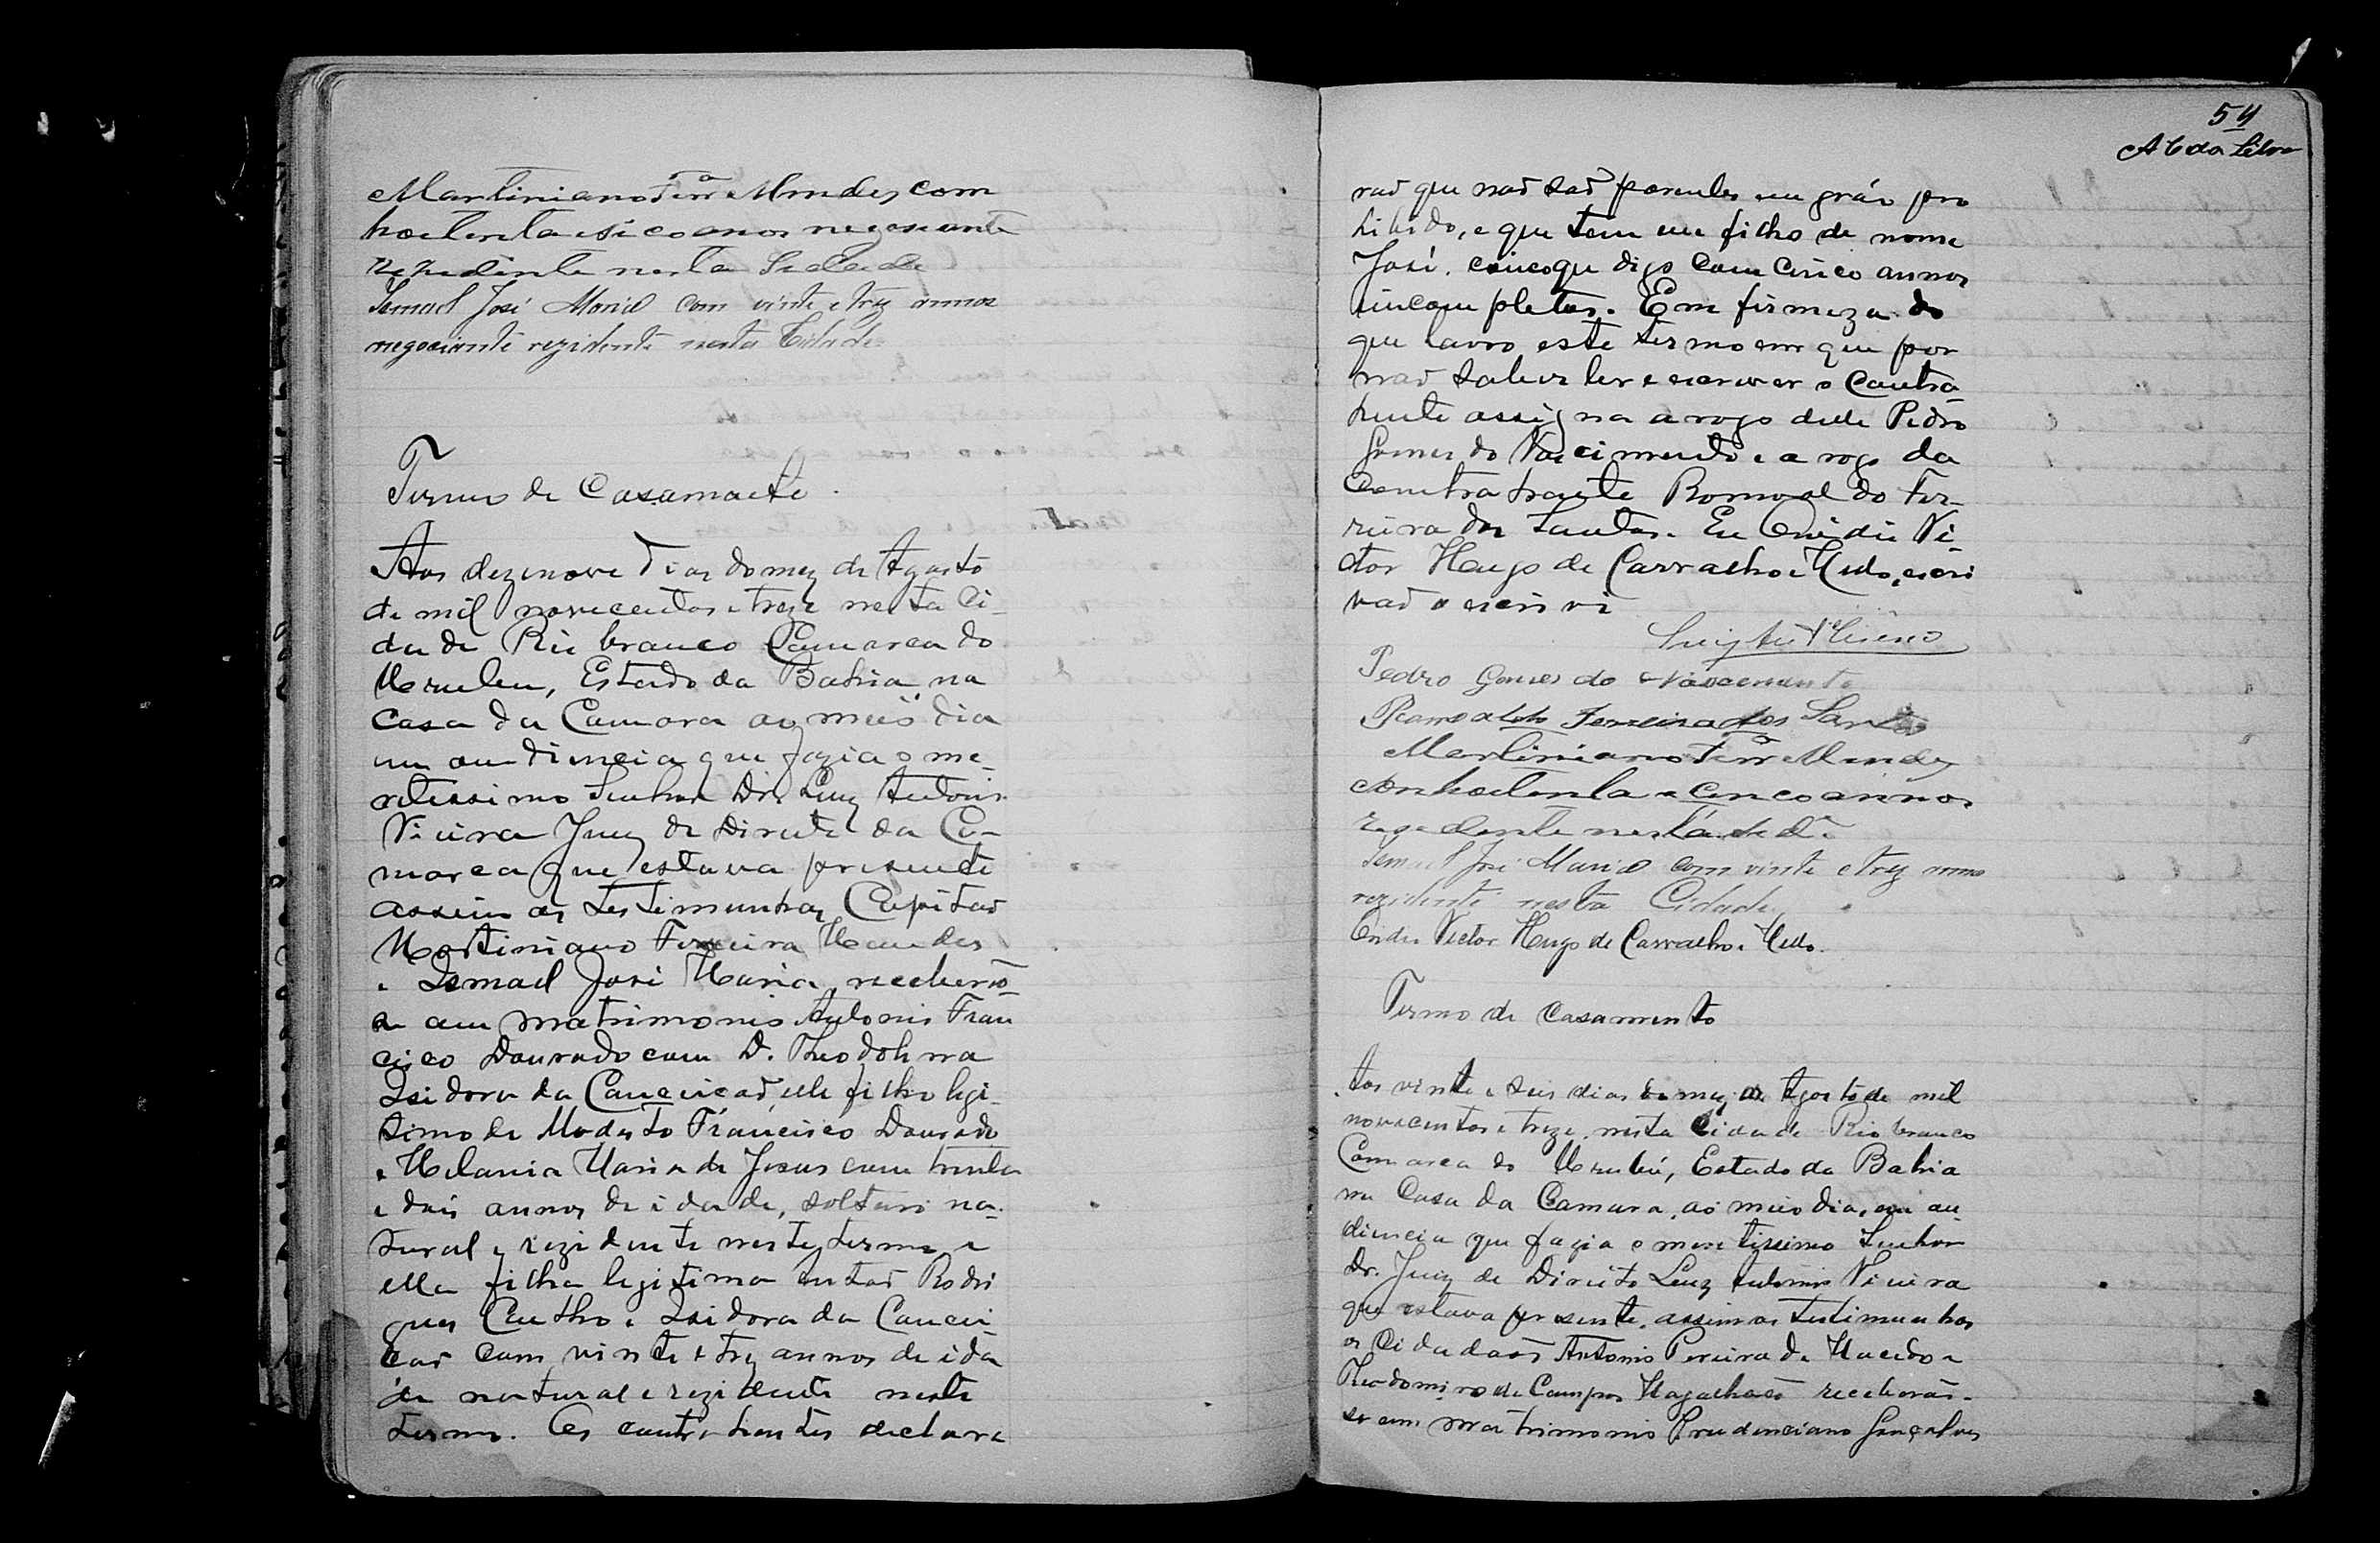 Martiniano Ferrª Mendes com
hoetenta e sico anos negosiante
rezedente nesta Sidade
Ismael José Maria com vinte e trez annos
negociante rezidente nesta Cidade
Termo de Casamento.
Aos dezenove dias do mez de Agosto
de mil novecentos e treze nesta Ci-
dade Rio branco Comarca do
Urubu, Estado da Bahia, na
Casa da Camara ao meio dia
em audiencia que fazia o me-
retissimo Senhor Dr. Luiz Antonio
Vieira Juiz de Direito da Co-
marca que estava presente
assim as testimunhas Capitão
Martiniano Ferreira Mendes
e Ismael José Maria, receberão-
se em matrimonio Antonio Fran
cisco Dourado com D. Theodolina
Isidora da Conceicaõ, elle filho legi-
timo de Modesto Francisco Dourado
e Melania Maria de Jesus com trinta
e dois annos de idade, solteiro na-
tural e rezidente neste termo e
ella filha legitima Rodri
gues Coutho e Isidora da Concei-
caõ com vinte e trez annos de ida
de natural e rezidente neste
termo. Os contrahentes declara
54
A C da Silva
raõ que naõ saõ parentes em gráo pro
hibido, e que tem um filho de nome
José. cinco que digo com cinco annos
incompletos. Em firmeza do
que lavro este termo em que por
naõ saber ler e escrever o Contra-
hente assigna a rogo delle Pedro
Gomes do Nascimento e a rogo da
Contrahente Romoaldo Fer-
reira dos Santos. Eu Ovidio Vi-
ctor Hugo de Carvalho e Mello, escri
vaõ o escrivi
Luiz Antº Vieira
Pedro Gomes do Nascemento
Romoaldo Ferreira dos Santos
Martiniano Ferrª Mendes
com hoetenta e cenco annos
rezedente nesta
Ismael José Maria com vinte e trez annos
rezidente nesta Cidade
Ovidio Victor Hugo de Carvalho e Mello.
Termo de Casamento
Aos vinte e seis dias do mez de Agosto de mil
novecentos e treze, nesta Cidade Rio branco
Comarca do Urubú, Estado da Bahia
na Casa da Camara, ao meio dia, em au-
diencia que fazia o meretissimo Senhor
Dr. Juiz de Direito Luiz Antonio Vieira
que estava presente, assim as testimunhas
os Cidadaõs Antonio Pereira de Macedo e
Theodomiro de Campos Magalhaẽs receberaõ-
se em matrimonio Prudenciano Gonçalves